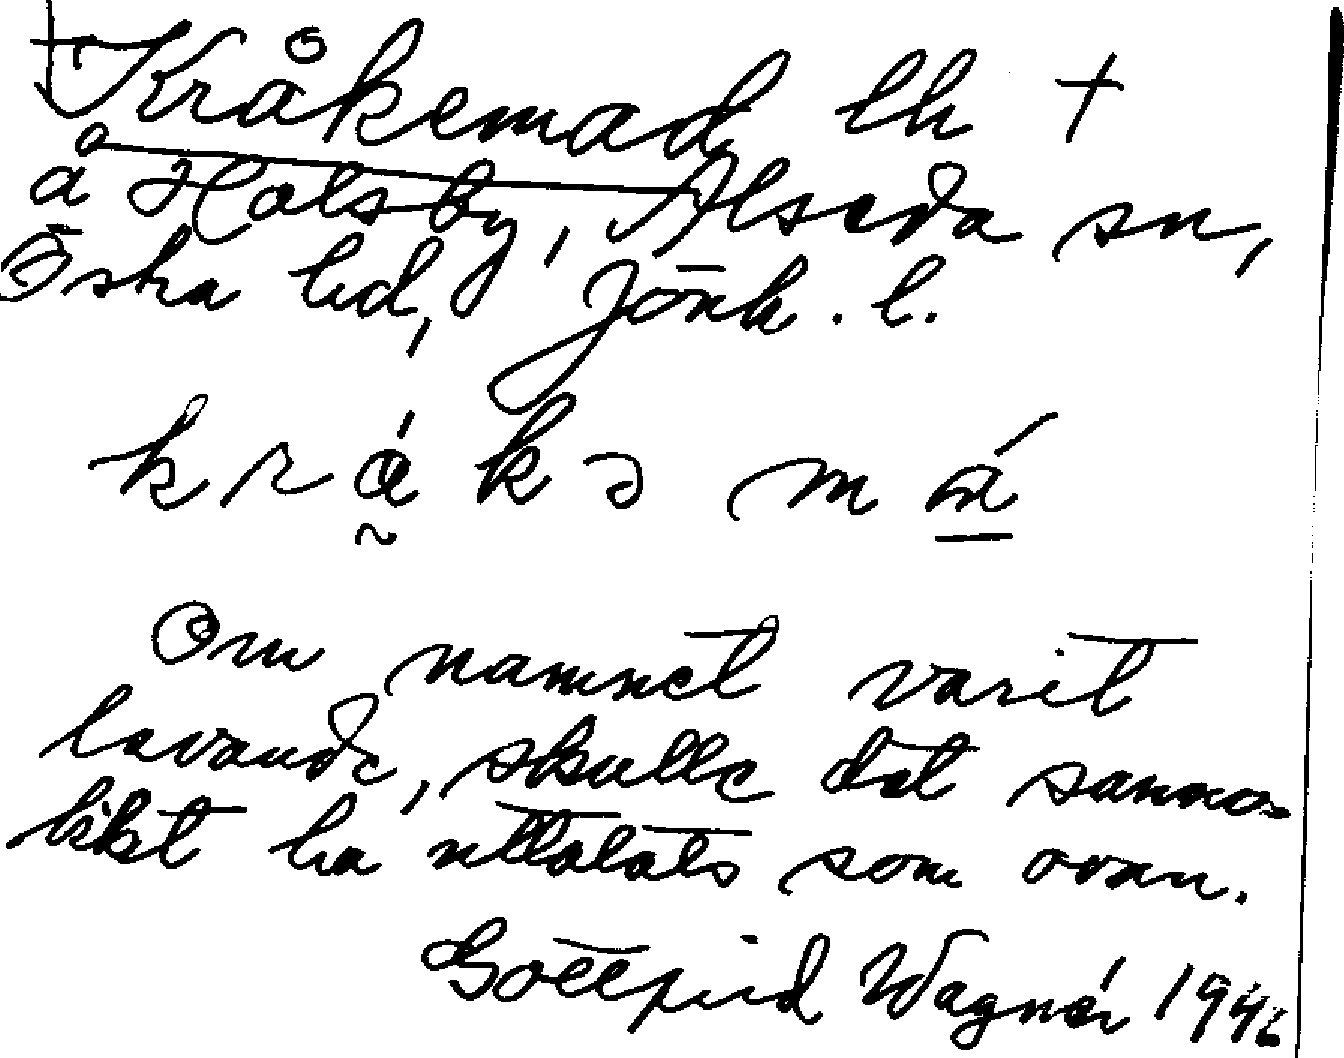 † Kråkemad, lh †
å Holsby, Alseda sn,
Östra hd, Jönk. l.
k r å k ə m á
Om namnet varit
levande, skulle det sanno-
likt ha uttalats som ovan.
Gottfrid Wagnér 1946